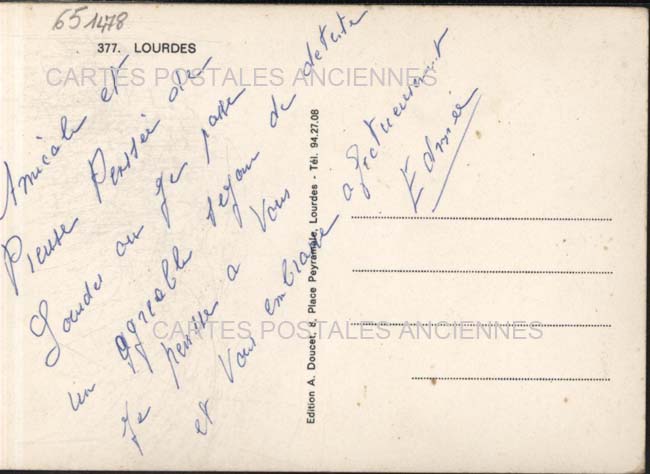 651478
377. LOURDES
CARTES POSTALES ANCIENNES
Amicale et
Pieuse Pensée de
Lourdes ou je passe
un agréable séjour de detente
Je pense a Vous
et Vous embrasse affectueusement
Edmée
Edition A. Doucet, 8, Place Peyramale, Lourdes - Tél. 94.27.08
CARTES POSTALES ANCIENNES